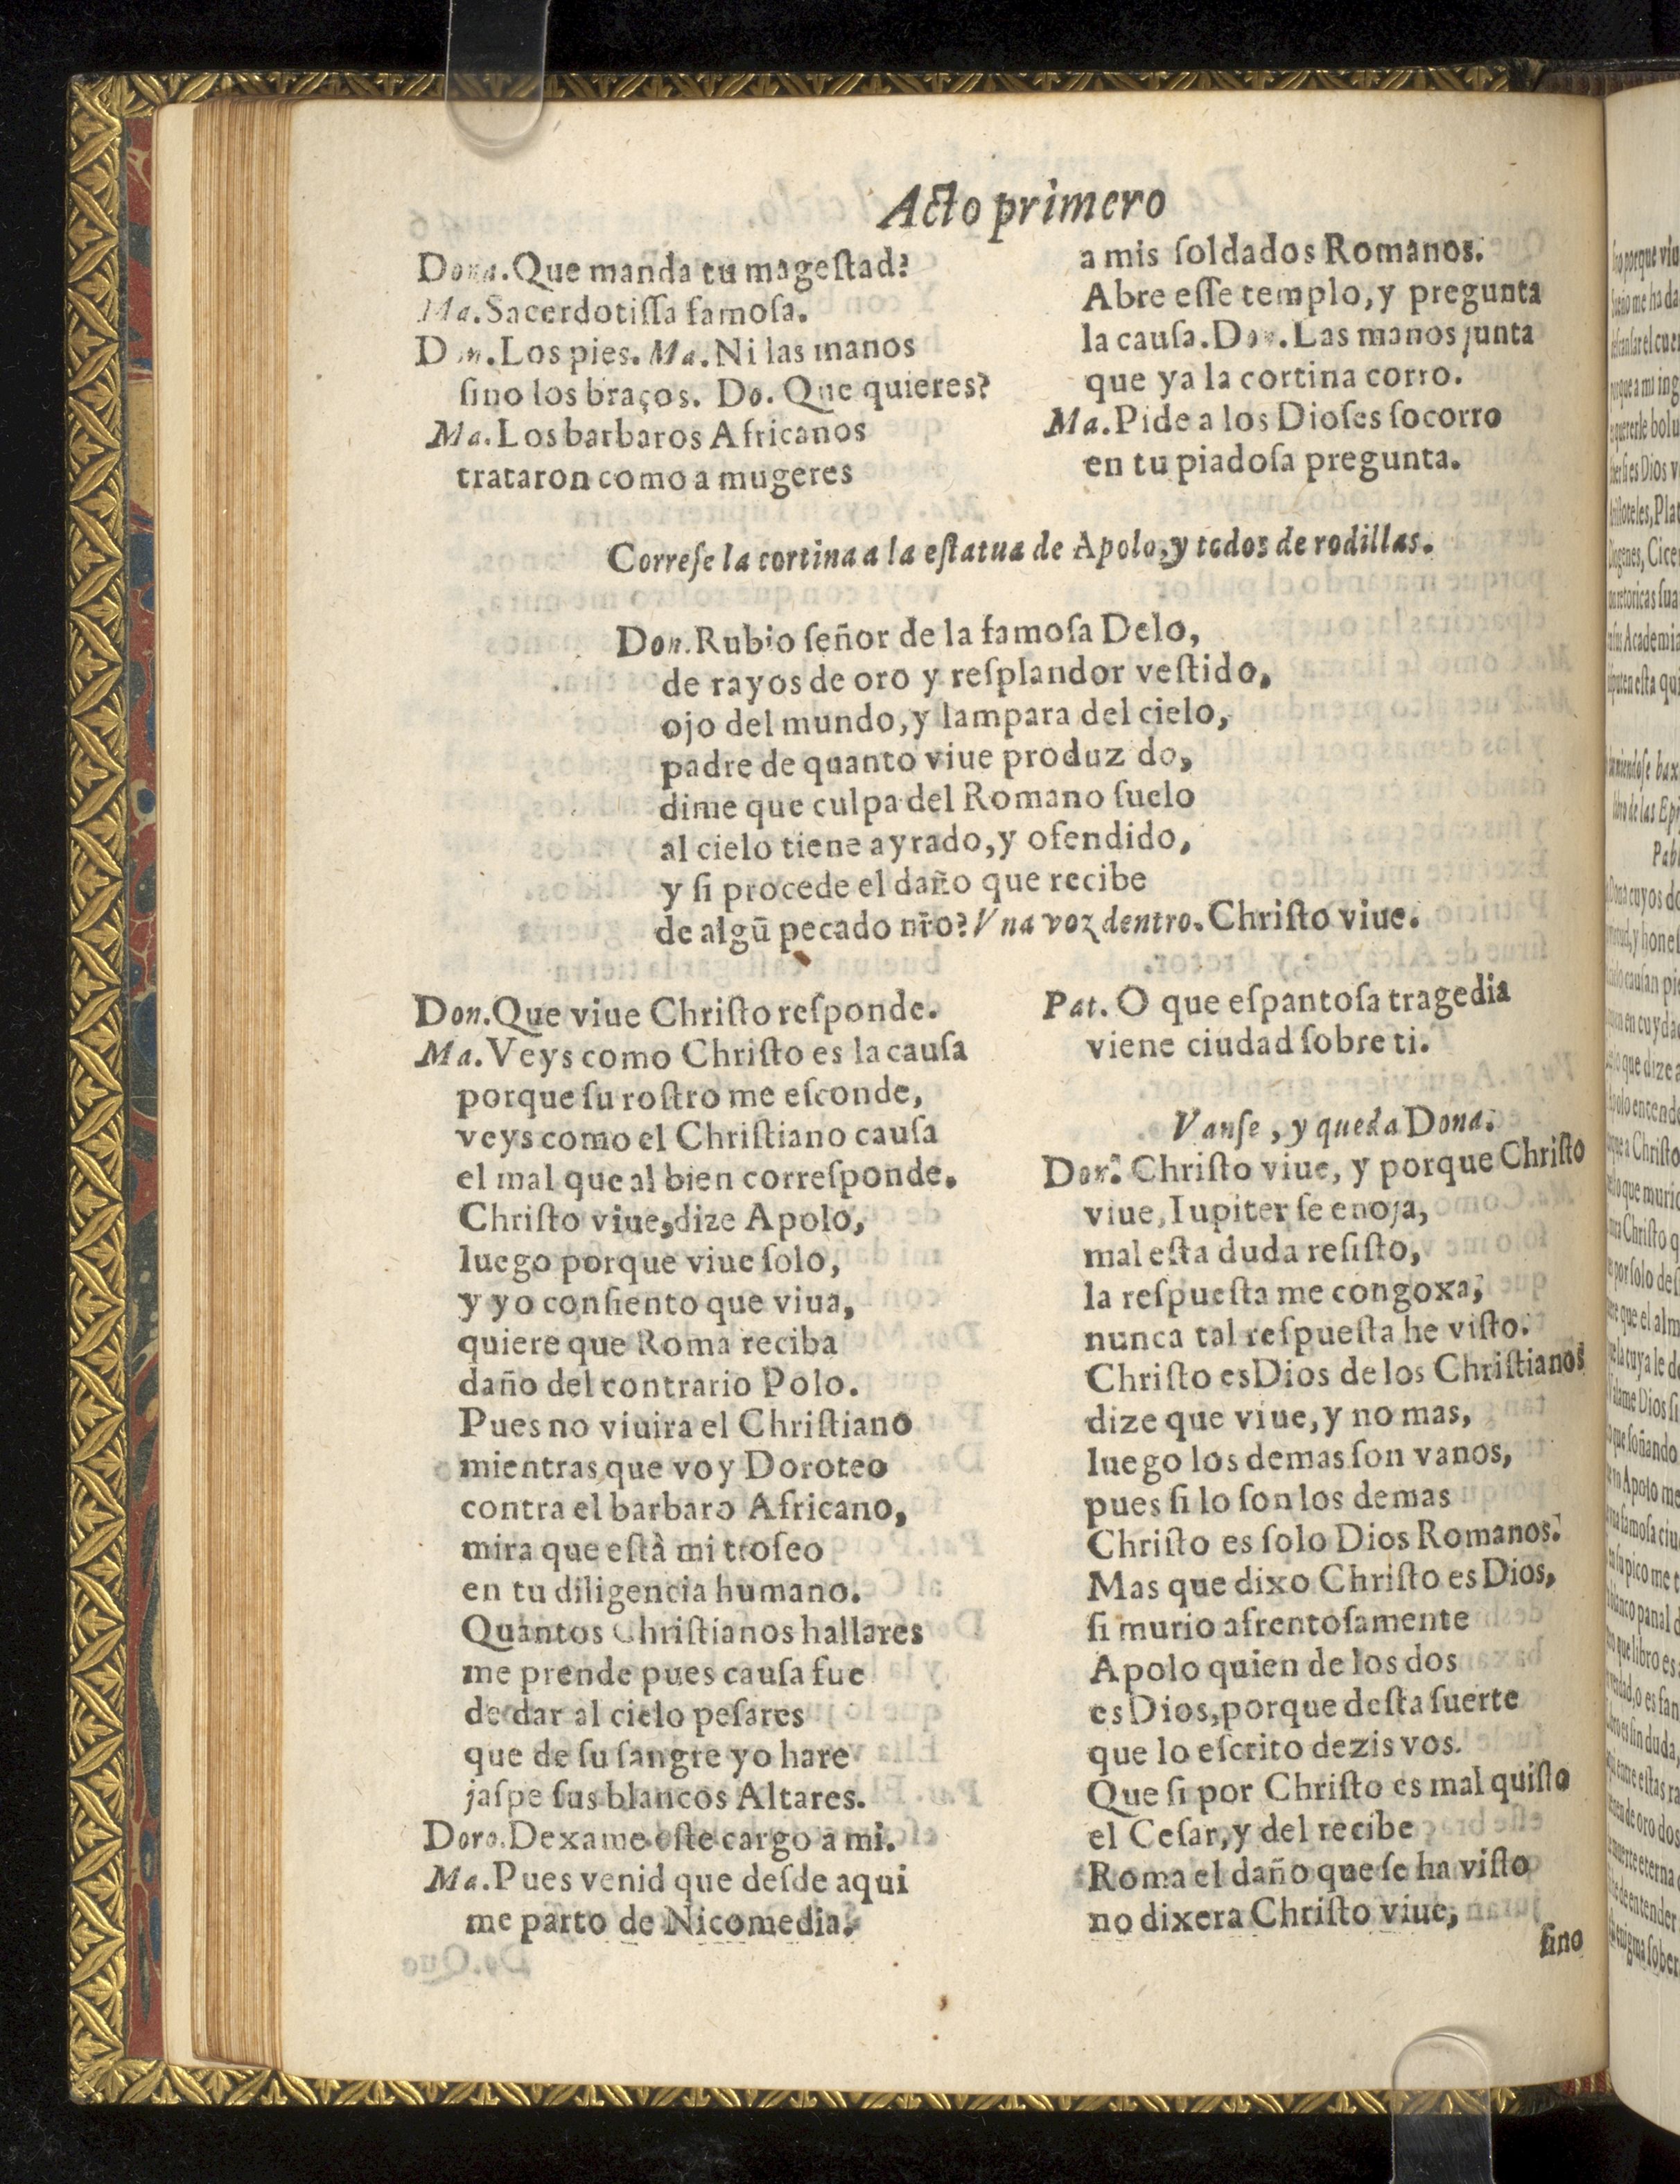 Acto primero
Dona. Que manda tu magestad?
Ma. Sacerdotissa famosa.
Don. Los pies. Ma. Ni las manos
sino los braços. Do. Que quieres?
Ma. Los barbaros Africanos
trataron como a mugeres
a mis soldados Romanos.
Abre esse templo, y pregunta
la causa. Don. Las manos junta
que ya la cortina corro.
Ma. Pide a los Dioses socorro
en tu piadosa pregunta.
Correse la cortina a la estatua de Apolo, y todos de rodillas.
Don. Rubio señor de la famosa Delo,
de rayos de oro y resplandor vestido,
ojo del mundo, y lampara del cielo,
padre de quanto viue produz do,
dime que culpa del Romano suelo
al cielo tiene ayrado, y ofendido,
y si procede el daño que recibe
de algũ pecado nr̃o? Vna voz dentro. Christo viue.
Don. Que viue Christo responde.
Ma. Veys como Christo es la causa
porque su rostro me esconde,
veys como el Christiano causa
el mal que al bien corresponde.
Christo viue, dize Apolo,
luego porque viue solo,
y yo consiento que viua,
quiere que Roma reciba
daño del contrario Polo.
Pues no viuira el Christiano
mientras que voy Doroteo
contra el barbaro Africano,
mira que està mi trofeo
en tu diligencia humano.
Quantos Christianos hallares
me prende pues causa fue
de dar al cielo pesares
que de su sangre yo hare
jaspe sus blancos Altares.
Doro. Dexame este cargo a mi.
Ma. Pues venid que desde aqui
me parto de Nicomedia.
Pat. O que espantosa tragedia
viene ciudad sobre ti.
Vanse, y queda Dona.
Don. Christo viue, y porque Christo
viue, Iupiter se enoja,
mal esta duda resisto,
la respuesta me congoxa,
nunca tal respuesta he visto.
Christo es Dios de los Christianos
dize que viue, y no mas,
luego los demas son vanos,
pues si lo son los demas
Christo es solo Dios Romanos.
Mas que dixo Christo es Dios,
si murio afrentosamente
Apolo quien de los dos
es Dios, porque desta suerte
que lo escrito dezis vos.
Que si por Christo es mal quisto
el Cesar, y del recibe
Roma el daño que se ha visto
no dixera Christo viue,
sino